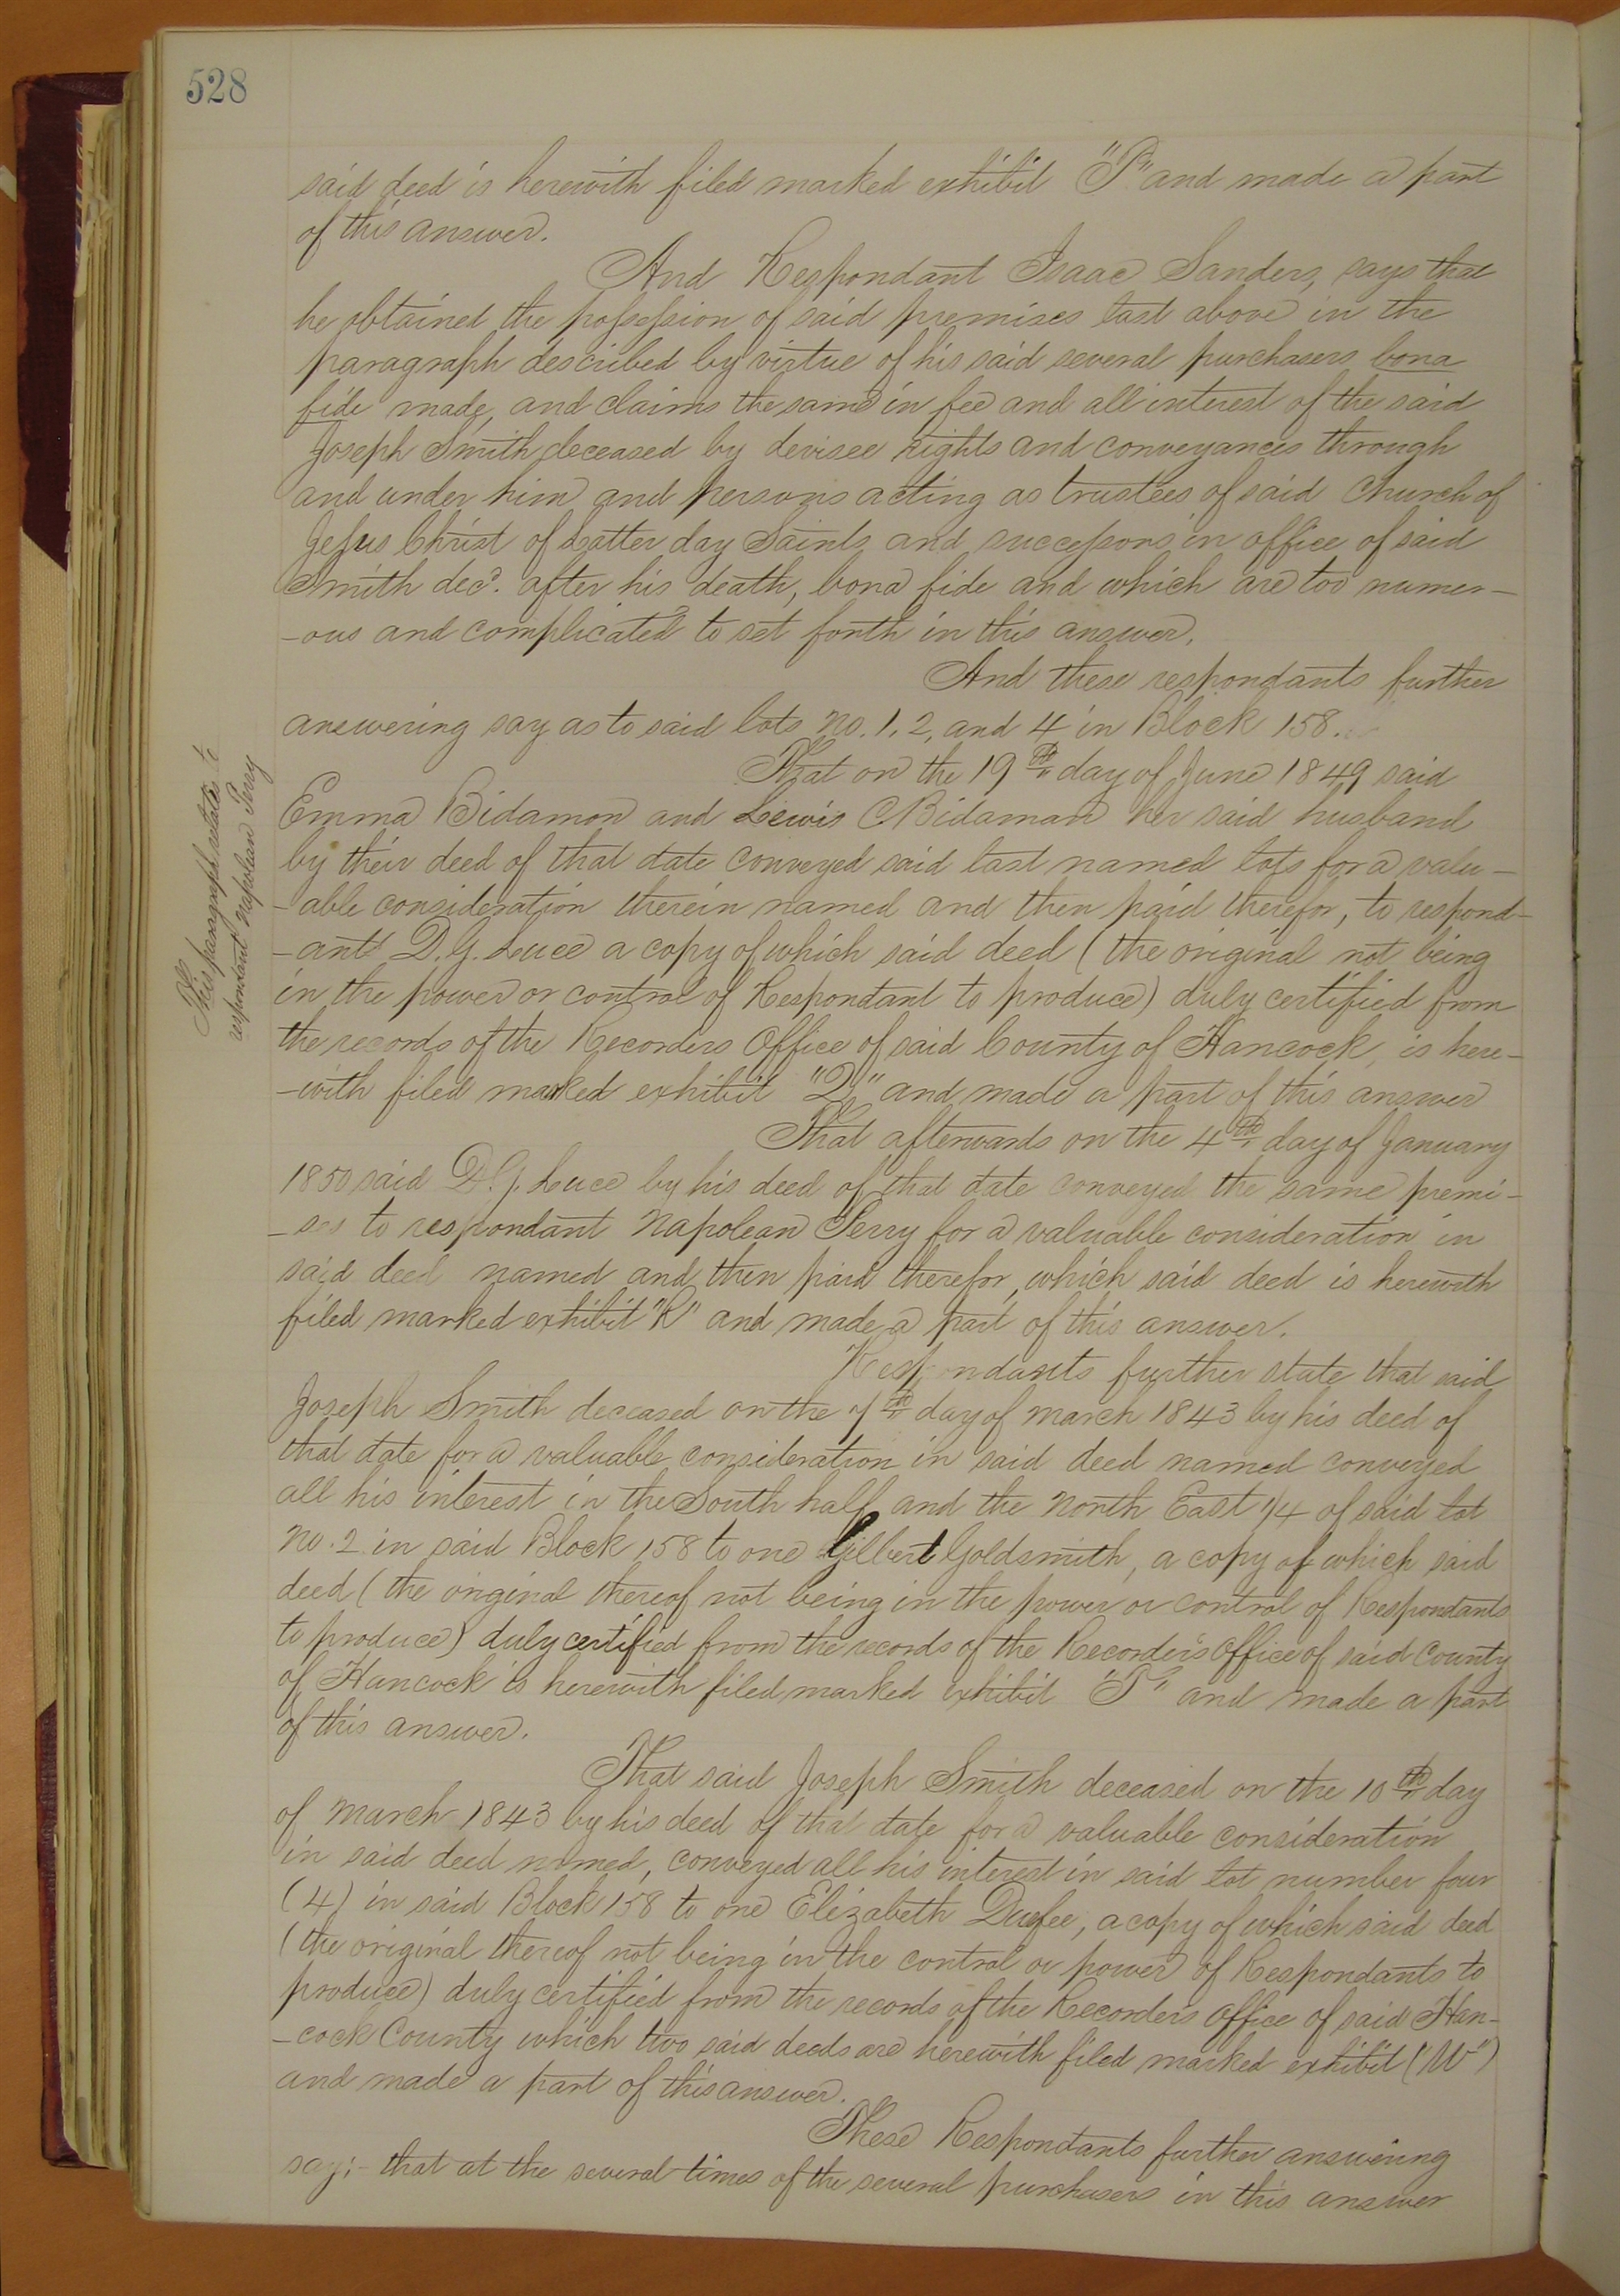 528
said deed is herewith filed marked exhibit "P" and made a part
of this answer.
And Respondant Isaac Sanders, says that
he obtained the possession of said premises last above in the
paragraph described by virtue of his said several purchasers bona
fide made, and claims the same in fee and all interest of the said
Joseph Smith deceased by devisee rights and conveyances through
and under him and persons acting as trustees of said Church of
Jesus Christ of Latter day Saints and successors in office of said
Smith decd. after his death, bona fide and which are too numer-
-ous and complicated to set forth in this answer.
And these respondants further
answering say as to said lots No. 1, 2, and 4 in Block 158.
That on the 19th day of June 1849 said
Emma Bidamon and Lewis C Bidaman her said husband
by their deed of that date conveyed said last named lots for a valu-
-able consideration therein named and then paid therefor, to respond-
-ant D. G. Luce a copy of which said deed (the original not being
in the power or control of Respondant to produce) duly certified from
the records of the Recorders Office of said County of Hancock, is here-
-with filed marked exhibit "Q" and made a part of this answer
That afterwards on the 4th day of January
1850 said D. G. Luce by his deed of that date conveyed the same premi-
-ses to respondant Napolean Perry for a valuable consideration in
said deed named and then paid therefor, which said deed is herewith
filed marked exhibit "R" and made a part of this answer.
Respondants further state that said
Joseph Smith deceased on the day of March 1843 by his deed of
that date for a valuable consideration in said deed named conveyed
all his interest in the South half and the North East 1/4 of said lot
No. 2 in said Block 158 to one Gilbert Goldsmith, a copy of which said
deed (the original thereof not being in the power or control of Respondants
to produce) duly certified from the records of the Recorder's Office of said County
of Hancock is herewith filed marked exhibit and made a part
of this answer.
That said Joseph Smith deceased on the 10th day
of March 1843 by his deed of that date for a valuable consideration
in said deed named, conveyed all his interest in said lot number four
(4) in said Block 158 to one Elizabeth Durfee, a copy of which said deed
(the original thereof not being in the control or power of Respondants to
produce) duly certified from the records of the Recorder's Office of said Han-
-cock County which two said deeds are herewith filed marked exhibit (W")
and made a part of this answer.
These Respondants further answering
say;- that at the several times of the several purchasers in this answer
This paragraph relates to
respondant Napolean Perry